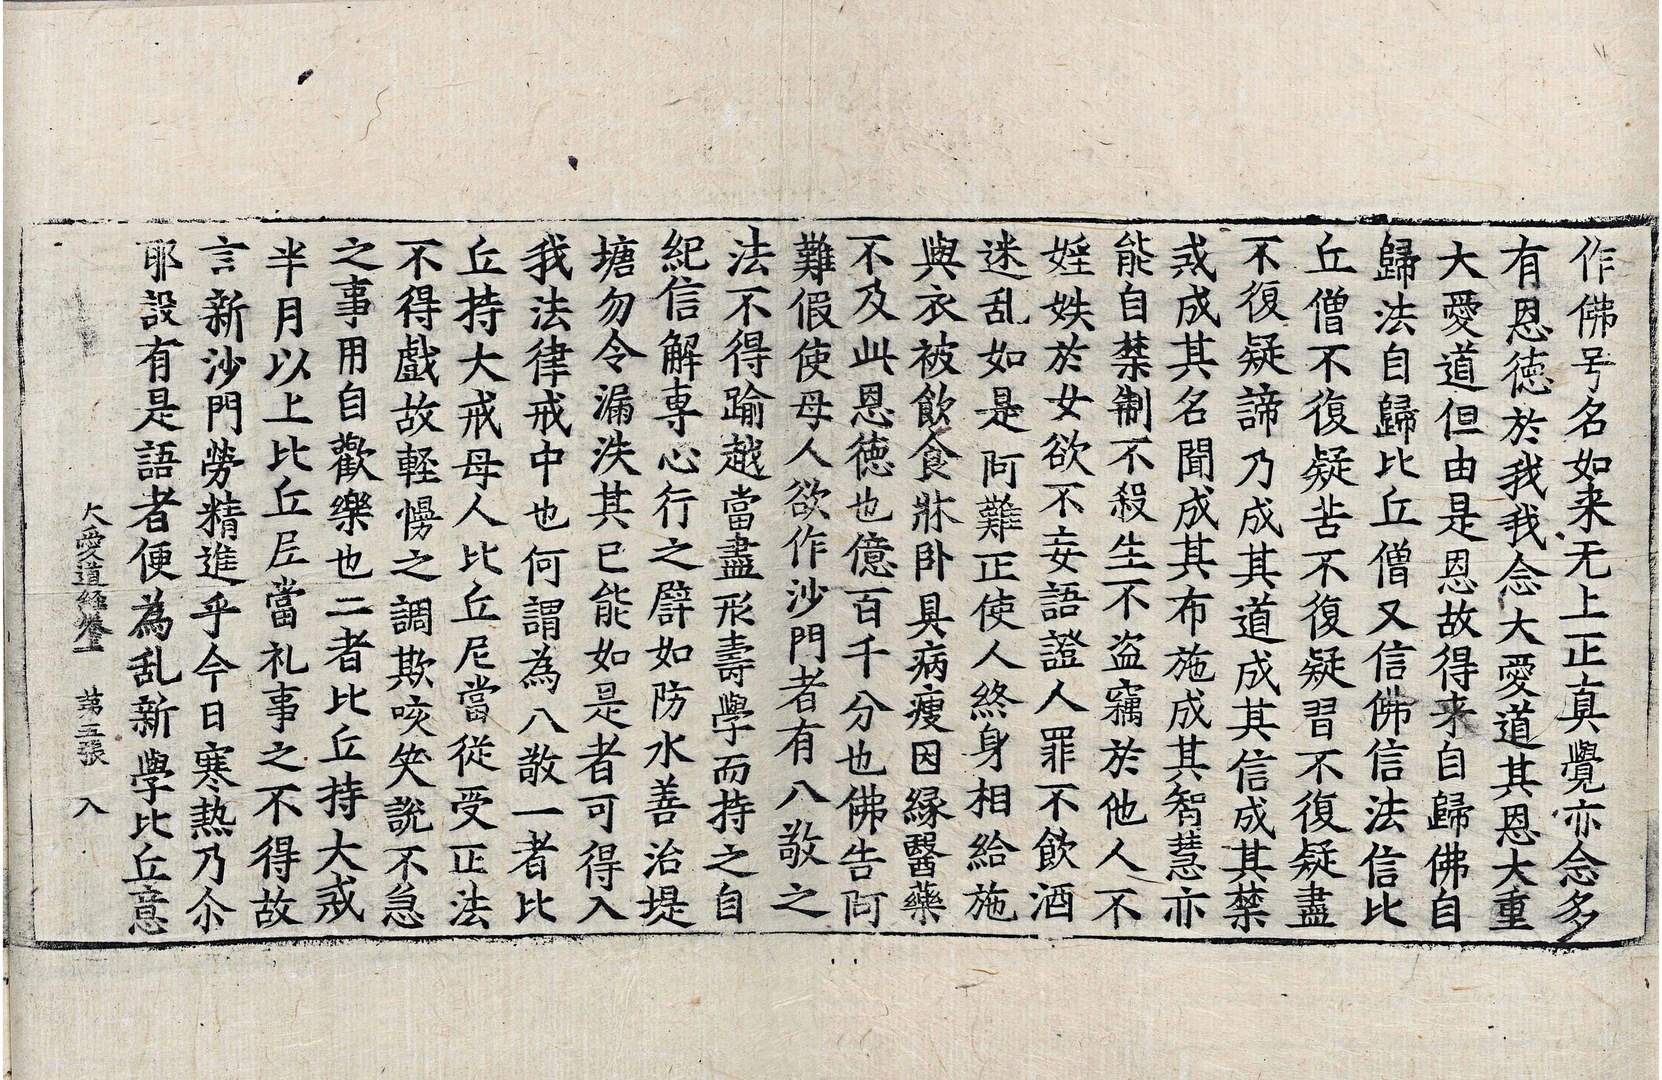 作佛号名如来无上正真覺亦念多
有恩徳於我我念大愛道其恩大重
大愛道但由是恩故得来自歸佛自
歸法自歸比丘僧又信佛信法信比
丘僧不復疑苦不復疑習不復疑盡
不復疑諦乃成其道成其信成其禁
戒成其名聞成其布施成其智慧亦
能自禁制不殺生不盗竊於他人不
婬妷於女欲不妄語證人罪不飲酒
迷乱如是阿難正使人終身相給施
與衣被飲食牀卧具病瘦因緣醫藥
不及此恩徳也億百千分也佛告阿
難假使母人欲作沙門者有八敬之
法不得踰越當盡形壽學而持之自
紀信解専心行之譬如防水善治堤
塘勿令漏泆其已能如是者可得入
我法律戒中也何謂為八敬一者比
丘持大戒母人比丘尼當従受正法
不得戲故輕慢之調欺咳笑說不急
之事用自歡樂也二者比丘持大戒
半月以上比丘尼當礼事之不得故
言新沙門勞精進乎今日寒熱乃尒
耶設有是語者便為乱新學比丘意
大愛道經卷上　第五張　入